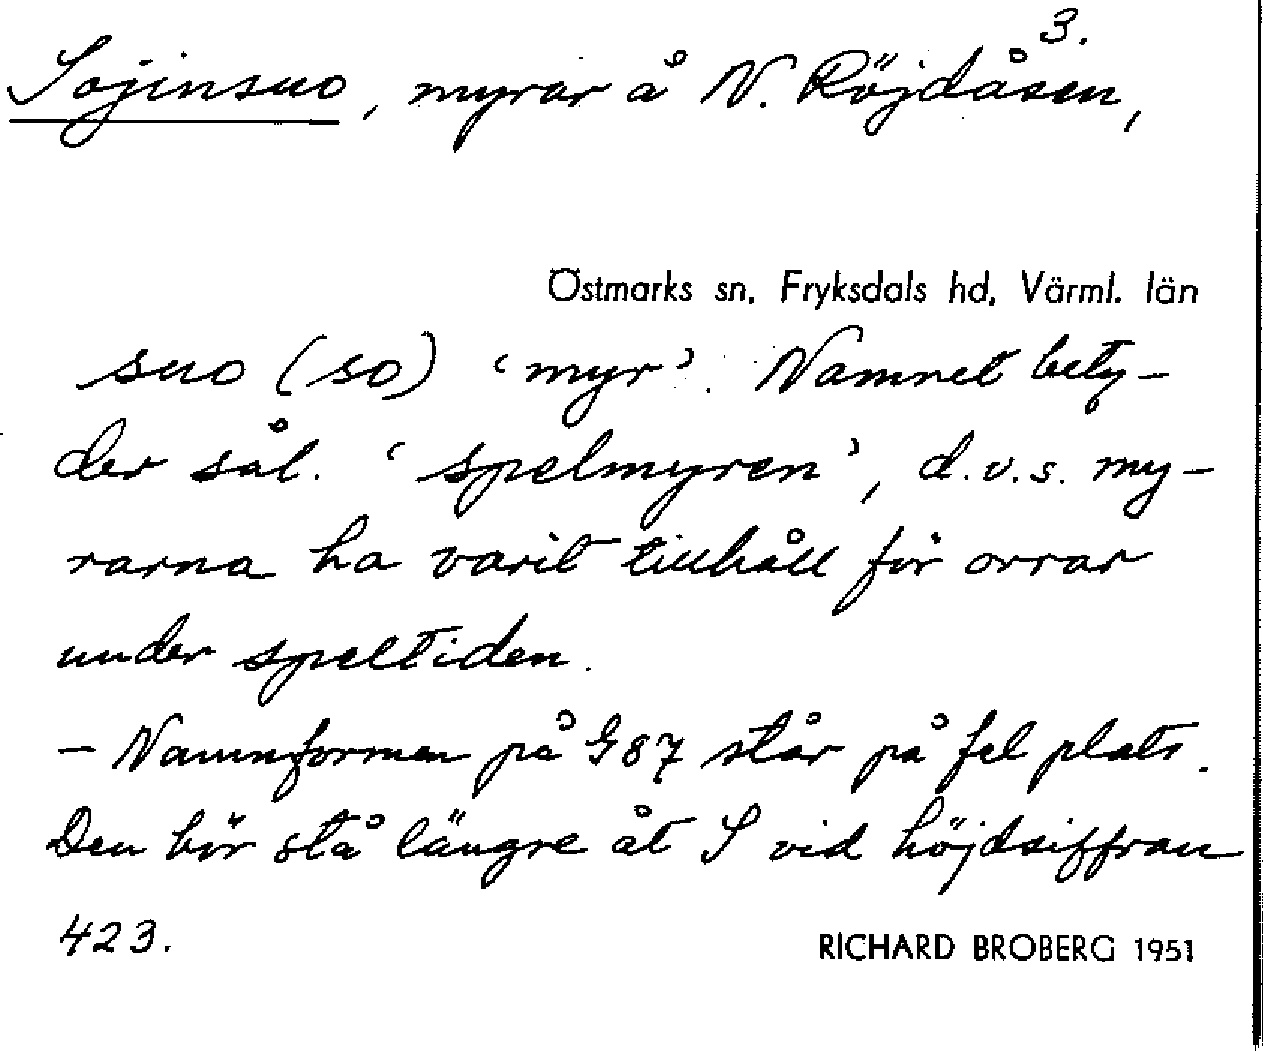 3.
Sojinsuo, myrar å N. Röjdåsen,
Östmarks sn, Fryksdals hd, Värml. län
suo (so) ‘myr’. Namnet bety-
der sål. ‘spelmyren’, d.v.s. my-
rarna ha varit tillhåll för orrar
under speltiden.
– Namnformen på G87 står på fel plats.
Den bör stå längre åt S vid höjdsiffran
423.
RICHARD BROBERG 1951